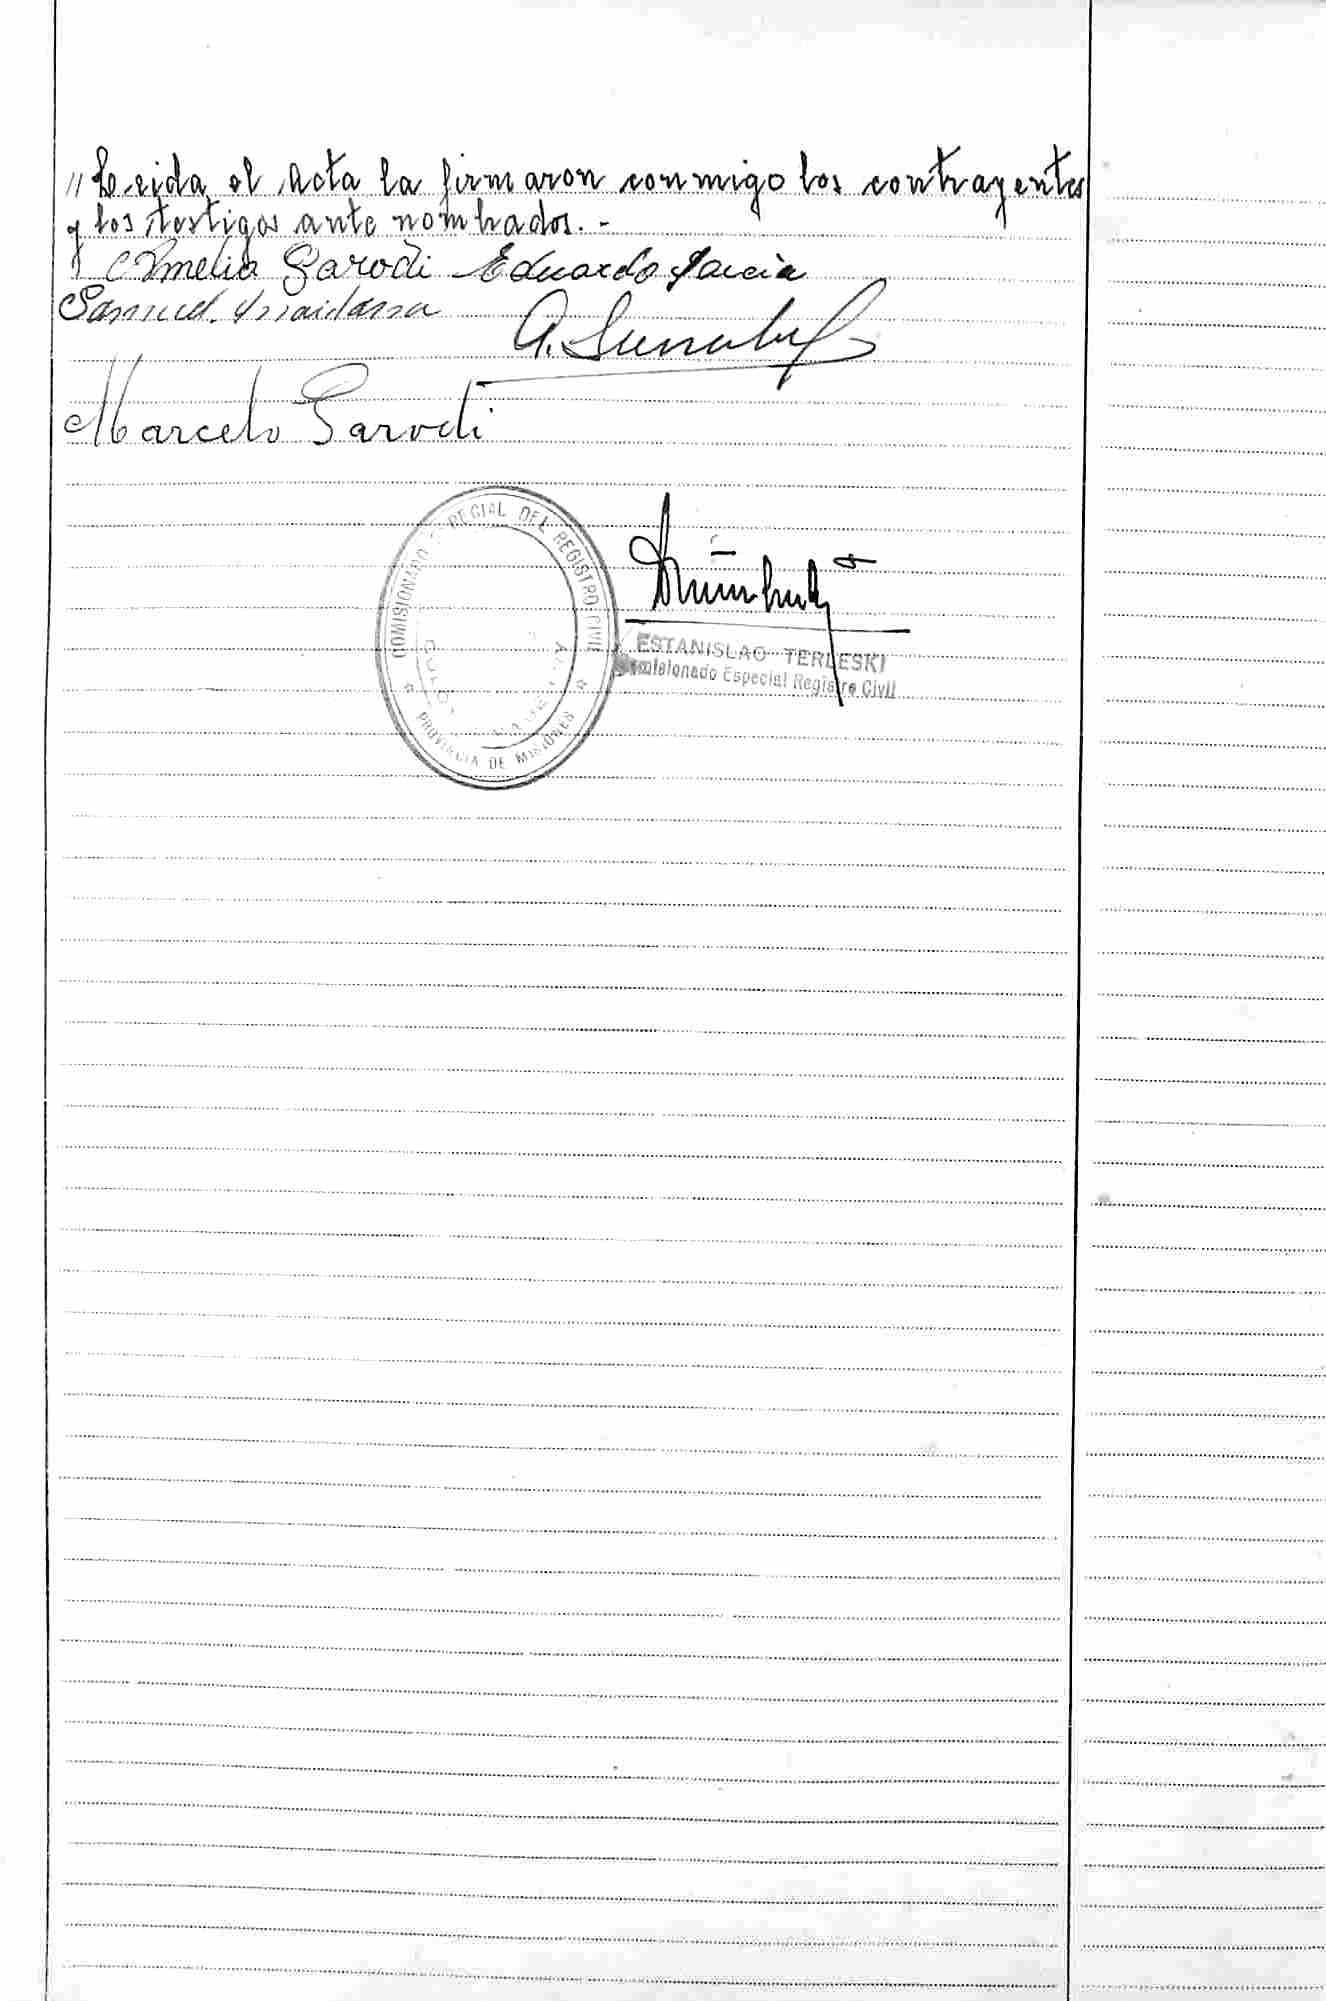 // Leeida el Acta la firmaron conmigo los contrayentes
y los testigos ante nombrados. -
Amelia Garodi Eduardo Garcia
Samuel
Marcelo Garodi
COMISIONADO ESPECIAL DEL REGISTRO CIVIL
PROVINCIA DE MISIONES
ESTANISLAO TERLESKI
Comisionado Especial Registro Civil